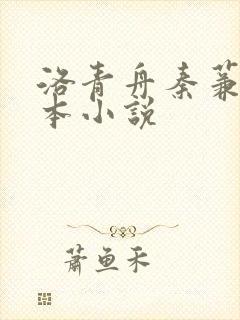 洛青舟秦蒹
本小説
蕭魚禾